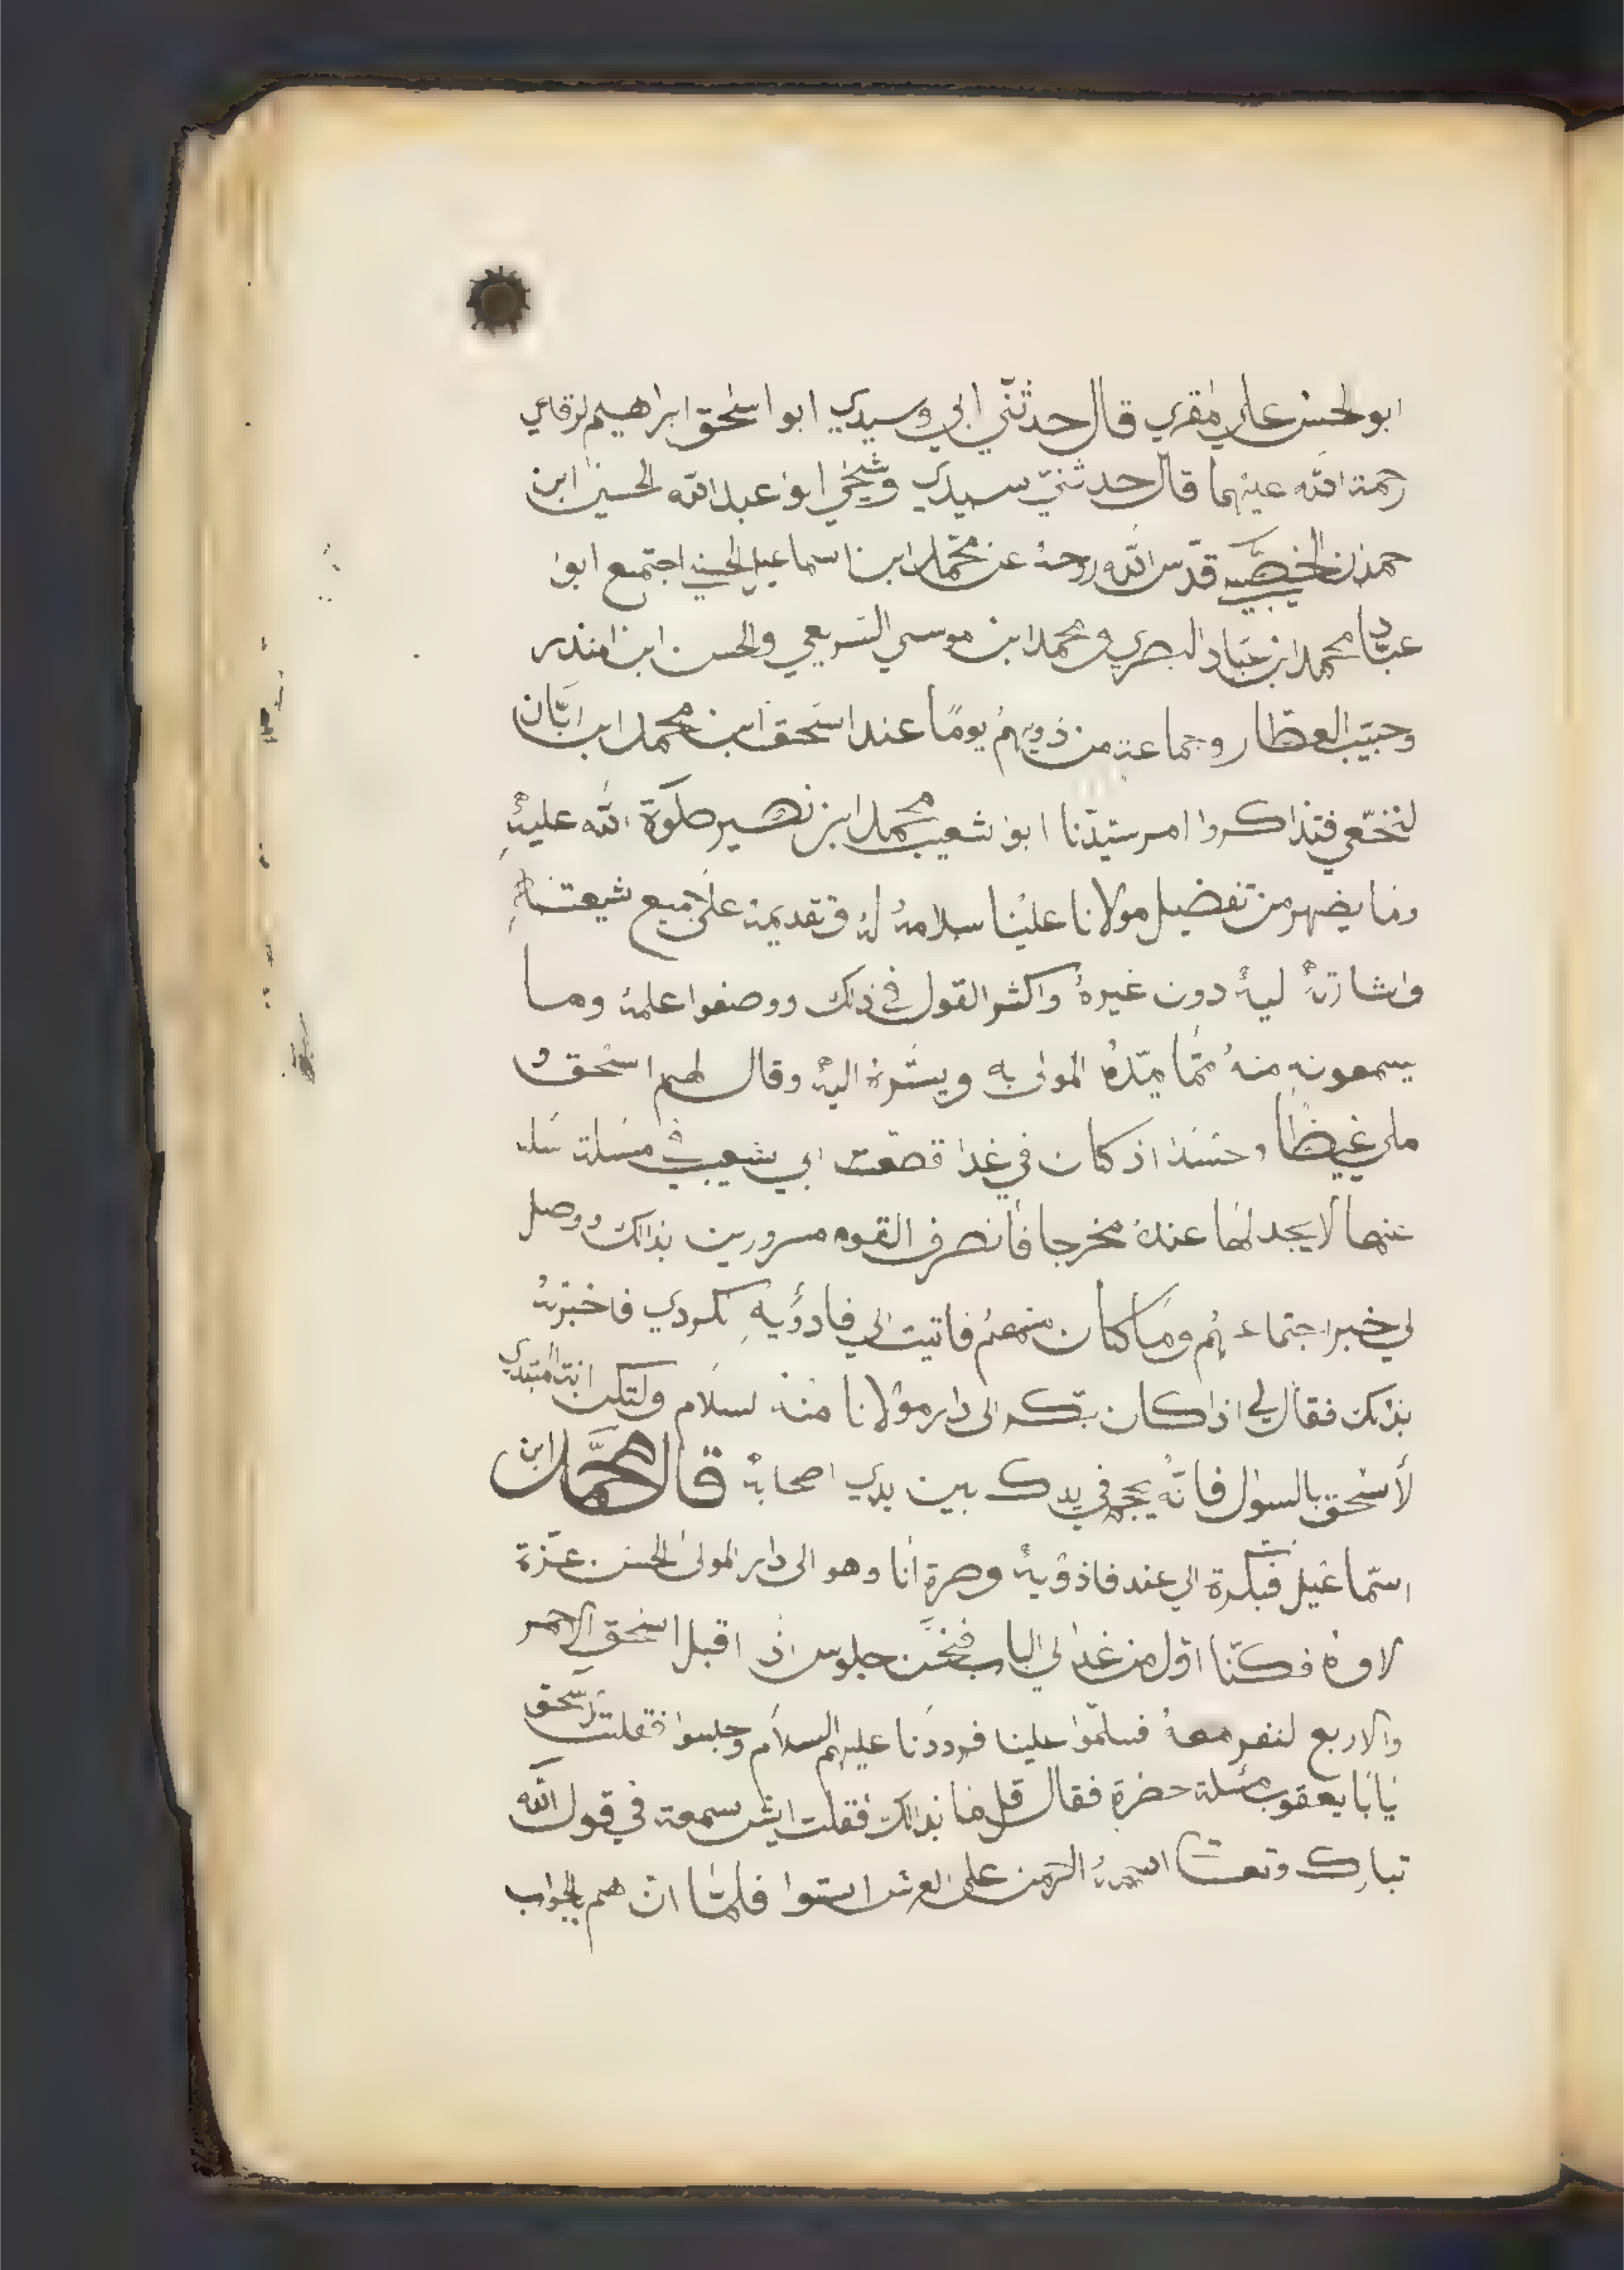 ابو لحسن علي مقري قال حدثني ابي وسيدي ابوا اسحق ابراهيم لرقاعي
رحمة الله عليهما قال حدثني سيدي وشيخي ابوا عبد الله الحسين ابن
حمدن الخصيبي قدس الله روحه عن محمد ابن اسماعيل الحسني اجتمع ابوا
عباد محمد ابن عباد البصري ومحمد ابن موسي السريعي والحسن ابن منذر
وحبيب العطار وجماعة من ذويهم يومًا عند اسحق ابن محمد ابن ابان
لنخعي فتذاكروا امر سيدنا ابو شعيب محمد ابن نصير صلوة الله عليه
وما يضهر من تفضيل مولانا علينا سلامه له وتقديمه على جميع شيعته
واشارته ليه دون غيره واكثر القول في ذلك ووصفوا علمه وما
يسمعونه منه مما يمده المولى به ويسره اليه وقال لهم اسحق و
ملي غيظًا وحسدا اذ كان في غدا قصعت ابي شعيب في مسلة سله
عنها لا يجد لها عنده مخرجا فانصرف القوم مسرورين بذالك ووصل
لي خبر اجتماعهم وما كان منهم فاتيت الي فادويه لكردي فاخبرته
بذلك فقال لي اذا كان بكر الى دار مولانا منه لسلام ولتكن انت المبتدي
لأسحق بالسوال فانه يجهد في يدك بين يدي اصحابه قال محمد ابن
اسماعيل فبكرة الي عند فاذويه وصرة أنا وهو الى دار المولى الحسن عزة
لاوه فكنا اول من غدا لي الباب فنحن جلوس اذ اقبل اسحق الاحمر
والاربع لنفر معه فسلموا علينا فرددنا عليهم السلام وجلسوا فقلت لاسحق
يا ابا يعقوب مسئلة حضرة فقال قل ما بذالك فقلت ايش سمعة في قول الله
تبارك وتعا اسمه الرحمن على العرش استوا فلما ان هم بالجواب